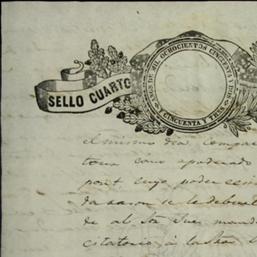 SELLO CUARTO
AÑOS DE MIL OCHOCIENTOS CINCUENTA Y DOS
Y CINCUENTA Y TRES
el mismo dia compa
tora como apoderado
por cuyo poder
da razon se le debuel
de al Sr Juez
citatorio á